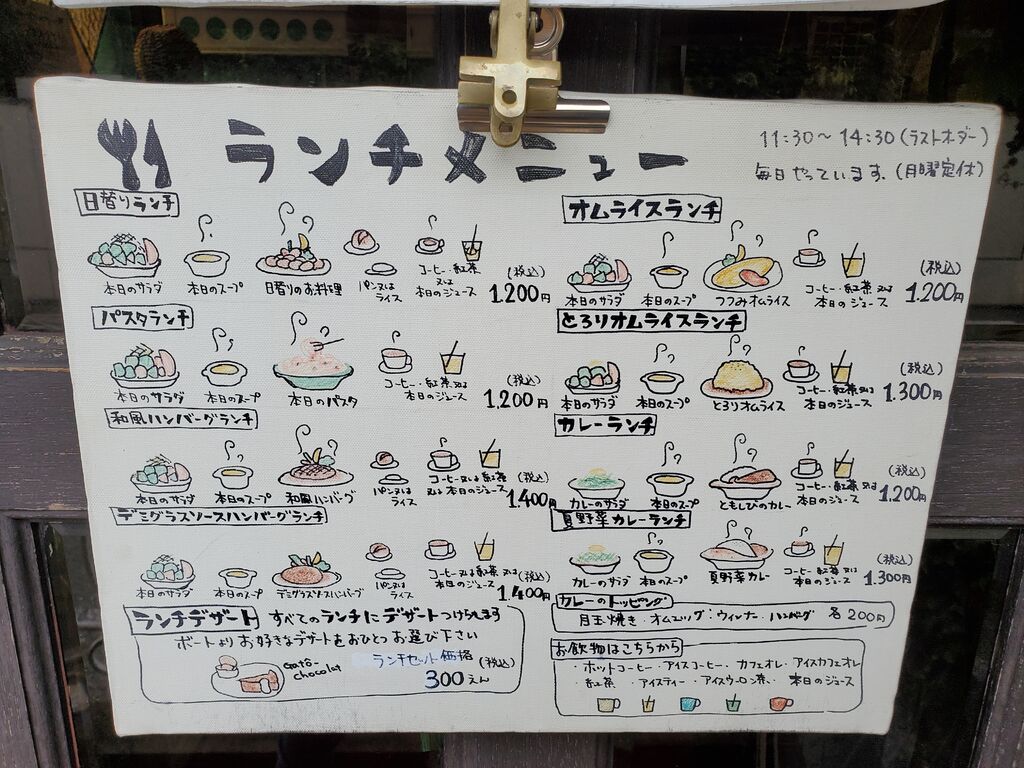 ランチメニュー
11:30〜14:30(ラストオーダー)
毎日やっています。(月曜定休)
日替りランチ
本日のサラダ
本日のスープ
日替りのお料理
パン又は
ライス
コーヒー・紅茶
又は
本日のジュース
(税込)
1.200円
パスタランチ
本日のサラダ
本日のスープ
本日のパスタ
コーヒー・紅茶又は
本日のジュース
(税込)
1,200円
和風ハンバーグランチ
本日のサラダ
本日のスープ
和風ハンバーグ
パン又は
ライス
コーヒー又は紅茶
又は本日のジュース
(税込)
1.400円
デミグラスソースハンバーグランチ
本日のサラダ
本日のスープ
デミグラスソースハンバーグ
パン又は
ライス
コーヒー又は紅茶又は
本日のジュース
(税込)
1.400円
ランチデザート すべてのランチにデザートつけられます
ボードよりお好きなデザートをおひとつお選び下さい
Gatô-
chocolat
ランチセット価格
(税込)
300えん
オムライスランチ
本日のサラダ
本日のスープ
つつみオムライス
コーヒー・紅茶又は
本日のジュース
(税込)
1.200円
とろりオムライスランチ
本日のサラダ
本日のスープ
とろりオムライス
コーヒー・紅茶又は
本日のジュース
(税込)
1.300円
カレーランチ
カレーのサラダ
本日のスープ
ともしびのカレー
コーヒー・紅茶又は
本日のジュース
(税込)
1.200円
夏野菜カレーランチ
カレーのサラダ
本日のスープ
夏野菜カレー
コーヒー・紅茶又は
本日のジュース
(税込)
1.300円
カレーのトッピング
目玉焼き・オムエッグ・ウィンナー・ハンバーグ 各200円
お飲物はこちらから
・ホットコーヒー・アイスコーヒー・カフェオレ・アイスカフェオレ
・紅茶・アイスティー・アイスウーロン茶・本日のジュース